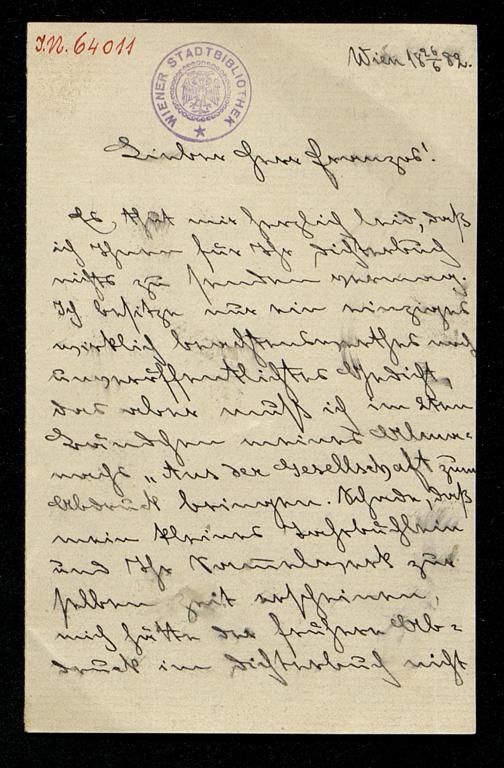 I.N. 64011
WIENER STADTBIBLIOTHEK
Wien 18 26/6 82.
Lieber Herr Franzos!
Es thut mir herzlich leid, daß
ich Ihnen für Ihr Dichterbuch
nichts zu senden vermag.
Ich besitze nur ein einziges
wirklich beachtenswerthes noch
unveröffentlichtes Gedicht,
das aber muß ich im 2ten
Bändchen meines Alma-
nachs „Aus der Gesellschaft" zum
Abdruck bringen. Schade, daß
mein kleines Jahrbüchlein
und Ihr Sammelwerk zur
selben Zeit erscheinen,
mich hätte der frühere Ab-
druck im Dichterbuch nicht